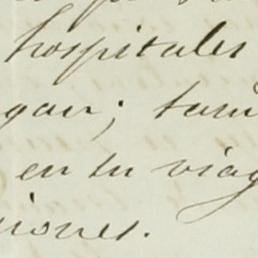 hospitales
gan; tam
en tu viag
iones.